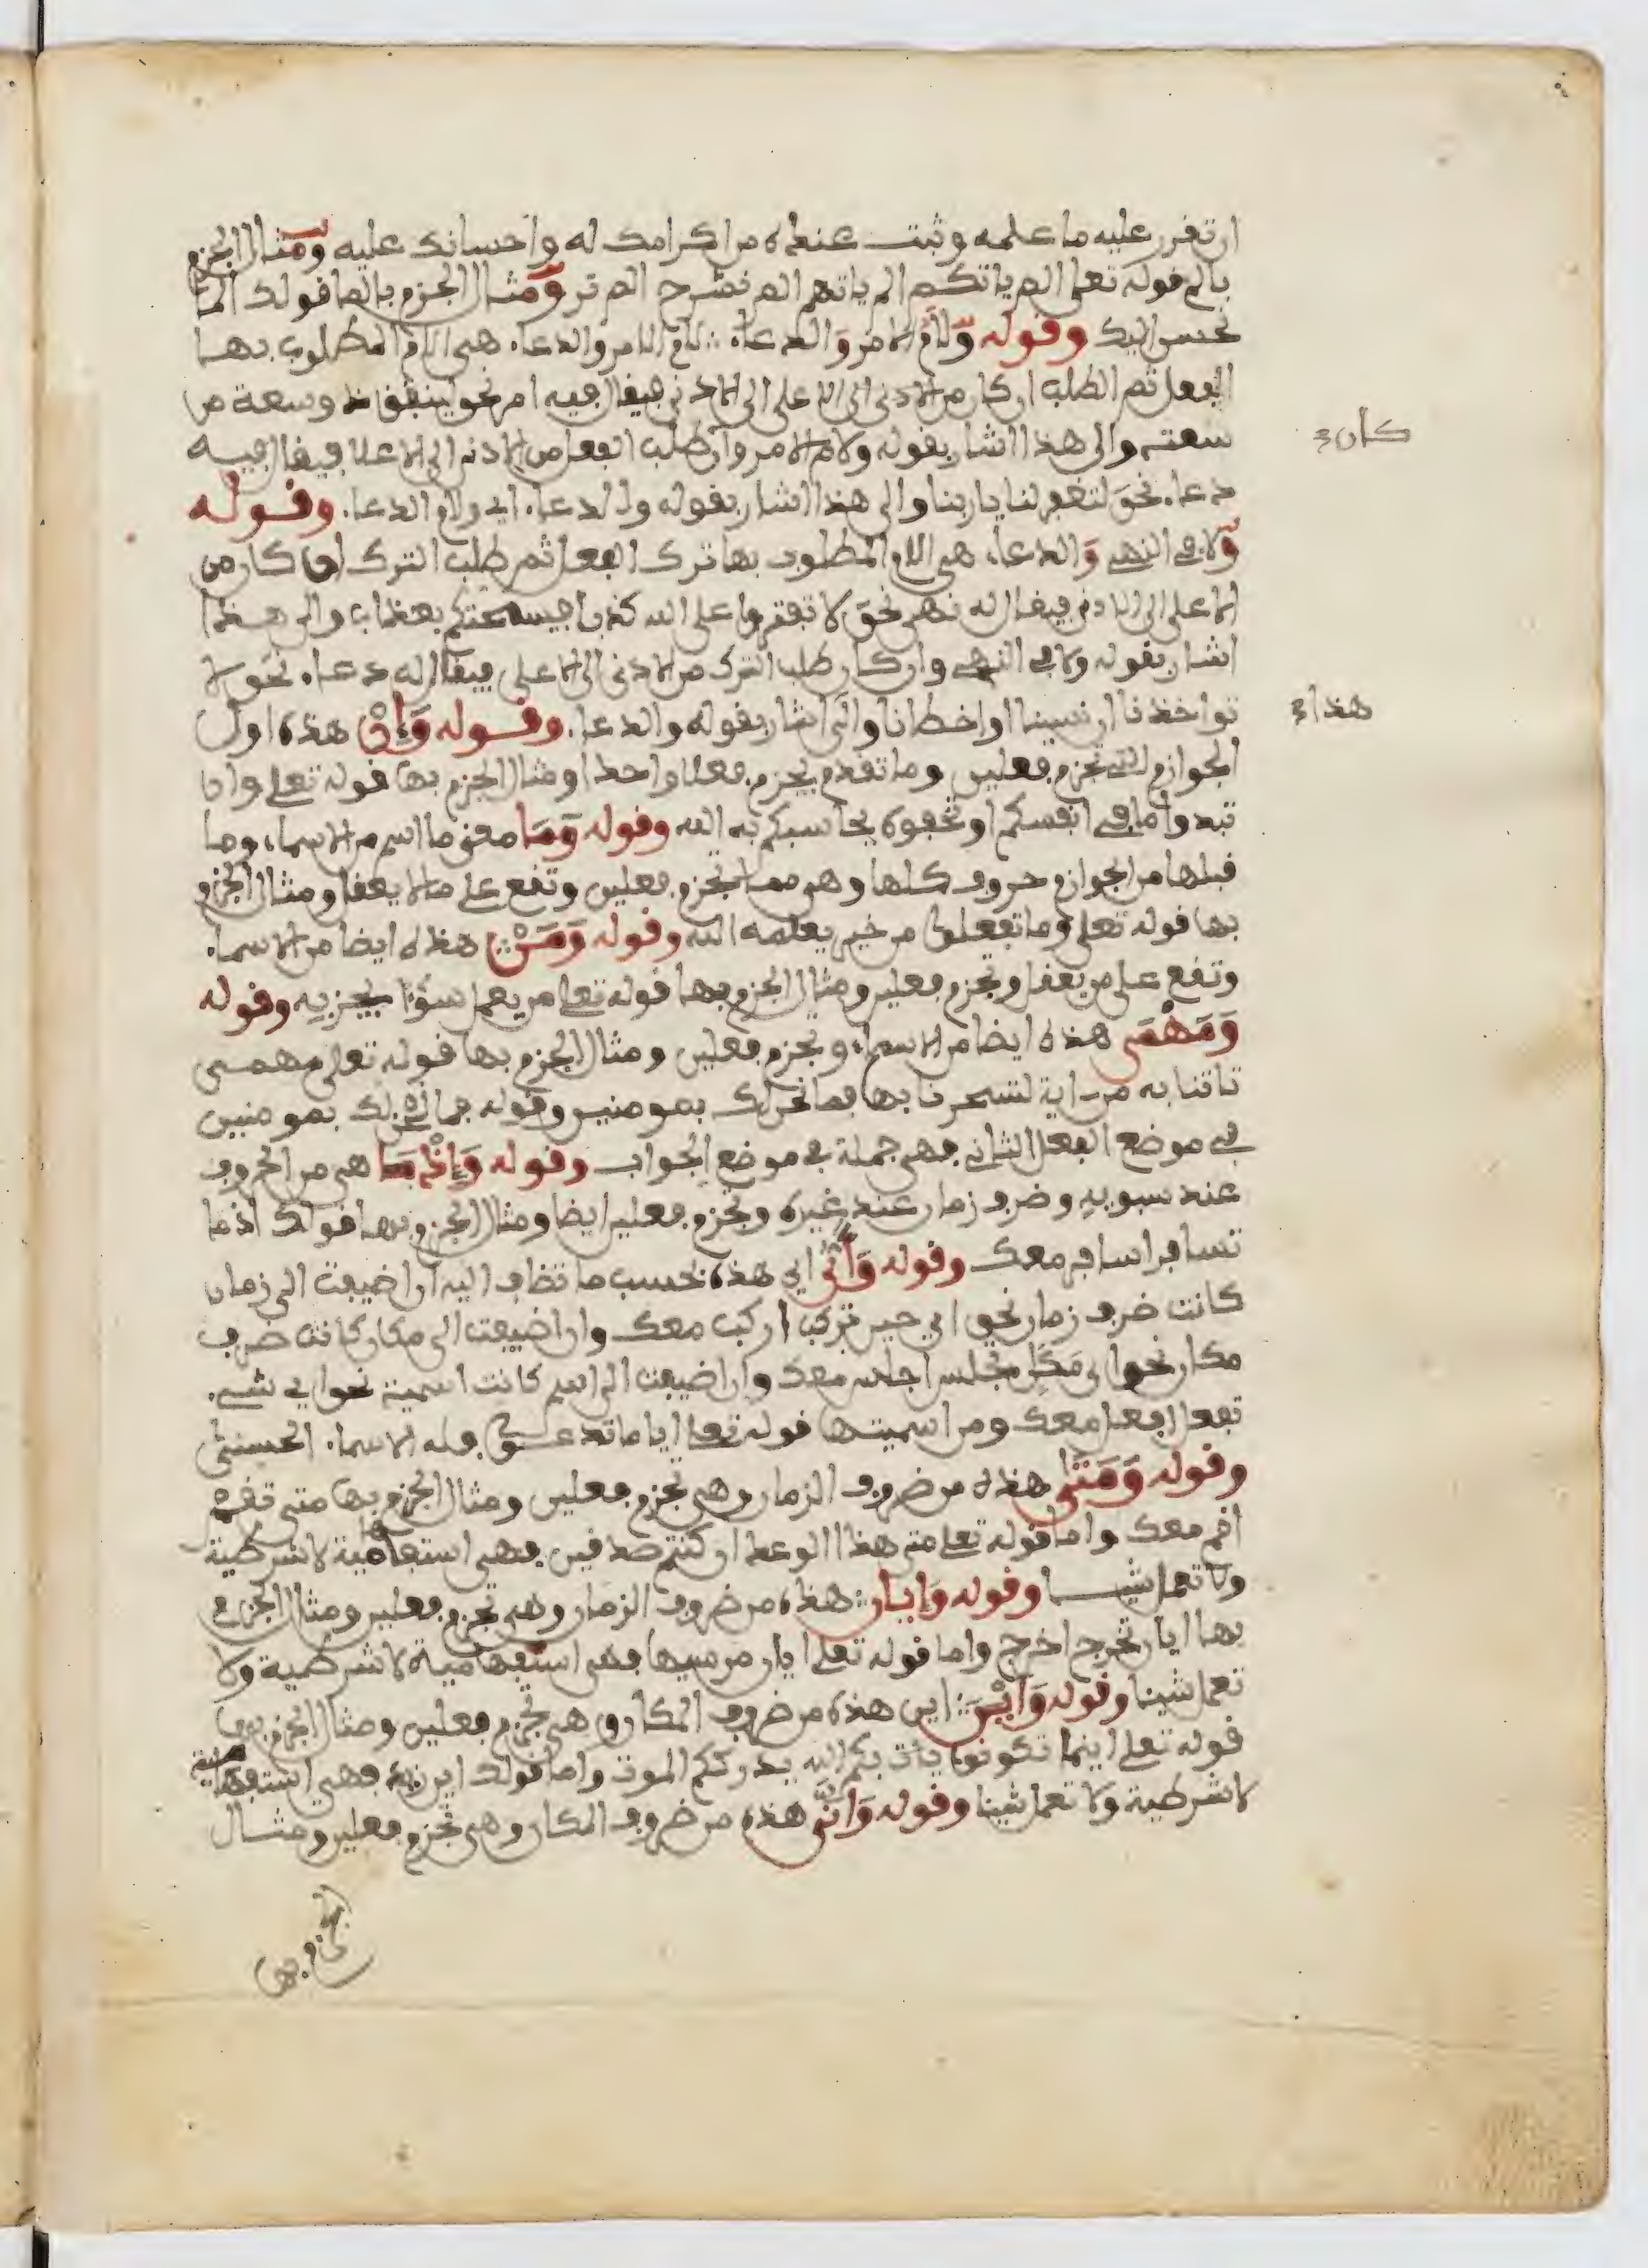 ان تقرر عليه ما علمه وثبت عنده من اكرامك له واحسانك عليه ومثال الجزم
بالم قوله تعلى الم ياتكم الم ياتهم الم نشرح الم تر ومثال الجزم بالما قولك الما
نحسن اليك وقوله ولام الامر والدعاء لام الامر والدعاء هي اللام المطلوب بها
الفعل ثم الطلب ان كان من الاذنى الى الاعلى الى الاذنى فيقال فيه امر نحو لينفق ذو وسعة من
سعته والى هذا اشار بقوله ولام الامر وان طلب الفعل من الاذنى الى الاعلا فيقال فيه
دعاء نحو لتغفر لنا يا ربنا والى هذا اشار بقوله والدعاء اي ولام الدعاء وقوله
ولا في النهي والدعاء هي اللام المطلوب بها ترك الفعل ثم طلب الترك ان كان من
الاعلى الى الاذنى فيقال له نهي نحو لا تفتروا على الله كذبا فيسحتكم بعذاب والى هذا
اشار بقوله ولا في النهي وان كان طلب الترك من الاذنى الى الاعلى فيقال له دعاء نحو لا
تواخذنا ان نسينا او اخطانا والى اشار بقوله والدعاء وقوله وَإِنْ هذه اول
الجوازم التي تجزم فعلين وما تقدم يجزم فعلا واحدا ومثال الجزم بها قوله تعلى وان
تبدوا ما في انفسكم او تخفوه يحاسبكم به الله وقوله وَمَا معنى ما اسم من الاسماء وما
قبلها من الجوازم حروف كلها وهي مما تجزم فعلين وتقع على ما لا يعقل ومثال الجزم
بها قوله تعلى وما تفعلوا من خير يعلمه الله وقوله وَمَنْ هذه ايضا من الاسماء
وتقع على من يعقل وتجزم فعلين ومثال الجزم بها قوله تعلى من يعمل سوءا يجز به وقوله
وَمَهْمَى هذه ايضا من الاسماء وتجزم فعلين ومثال الجزم بها قوله تعلى مهمى
تاتنا به من اية لتسحرنا بها فما نحن لك بمومنين وقوله فما نحن لك بمومنين
في موضع الفعل الثاني فهي جملة في موضع الجواب وقوله وَإِذْمَا هي من الحروف
عند سبويه وضرف زمان عند غيره وتجزم فعلين ايضا ومثال الجزم بها قولك اذما
تسافر اسافر معك وقوله وَأَيٌّ اي هذه بحسب ما تضاف اليه ان اضيفت الى زمان
كانت ضرف زمان نحو اي حين تركب اركب معك وان اضيفت الى مكان كانت ضرف
مكان نحو اي مكان تجلس اجلس معك وان اضيفت الى اسم كانت اسمية نحو اي شيء
تفعل افعل معك ومن اسميتها قوله تعلى ايا ما تدعوا فله الاسماء الحسنى
وقوله وَمَتَى هذه من ضروف الزمان وهي تجزم فعلين ومثال الجزم بها متى تقم
اقم معك واما قوله تعلى متى هذا الوعد ان كنتم صدقين فهي استفهامية لا شرطية
ولا تعمل شيـا وقوله وَايان هذه من ضروف الزمان وهي تجزم فعلين ومثال الجزم
بها ايان تخرج اخرج واما قوله تعلى ايان مرسيها فهي استفهامية لا شرطية ولا
تعمل شيئا وقوله وَأَيْنَ اين هذه من ضروف المكان وهي تجزم فعلين ومثال الجزم بها
قوله تعلى اينما تكونوا يات بكم الله يدرككم الموت واما قولك اين زيد فهي استفهامية
لا شرطية ولا تعمل شيئا وقوله وَانَّى هذه من ضروف المكان وهي تجزم فعلين ومثال
الجزم بها
كان
هذا